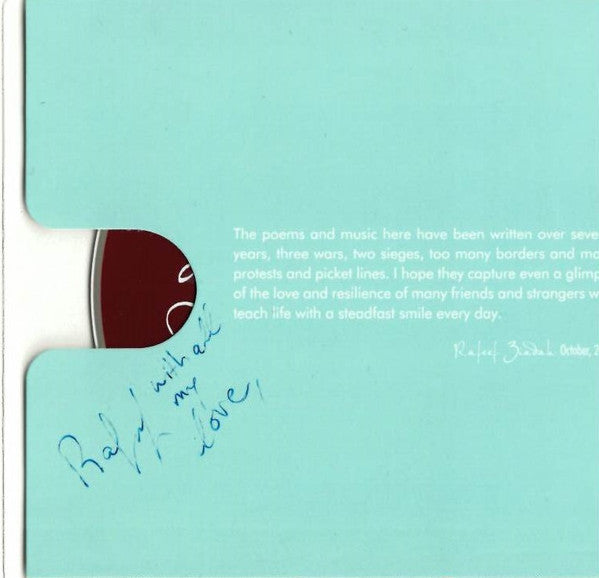 The poems and music here have been written over seve
years, three wars, two sieges, too many borders and ma
protests and picket lines. I hope they capture even a glimp
of the love and resilience of many friends and strangers w
teach life with a steadfast smile every day.
Rafeef Ziadah October, 2
with all
my
love,
Rafeef